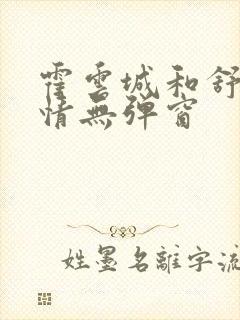 霍雲城和舒
情無彈窗
姓墨名離字流